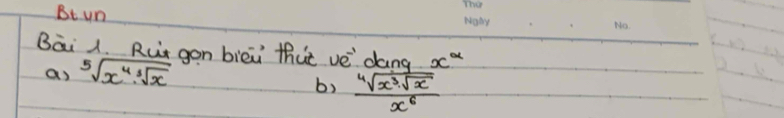 Thứ
Btvn
Ngày . . No.
Bài 1. Rút gọn biểu thức về dạng x^α
a) ⁵√(x⁴.³√x) b) ⁴√(x³.√x) / x⁶